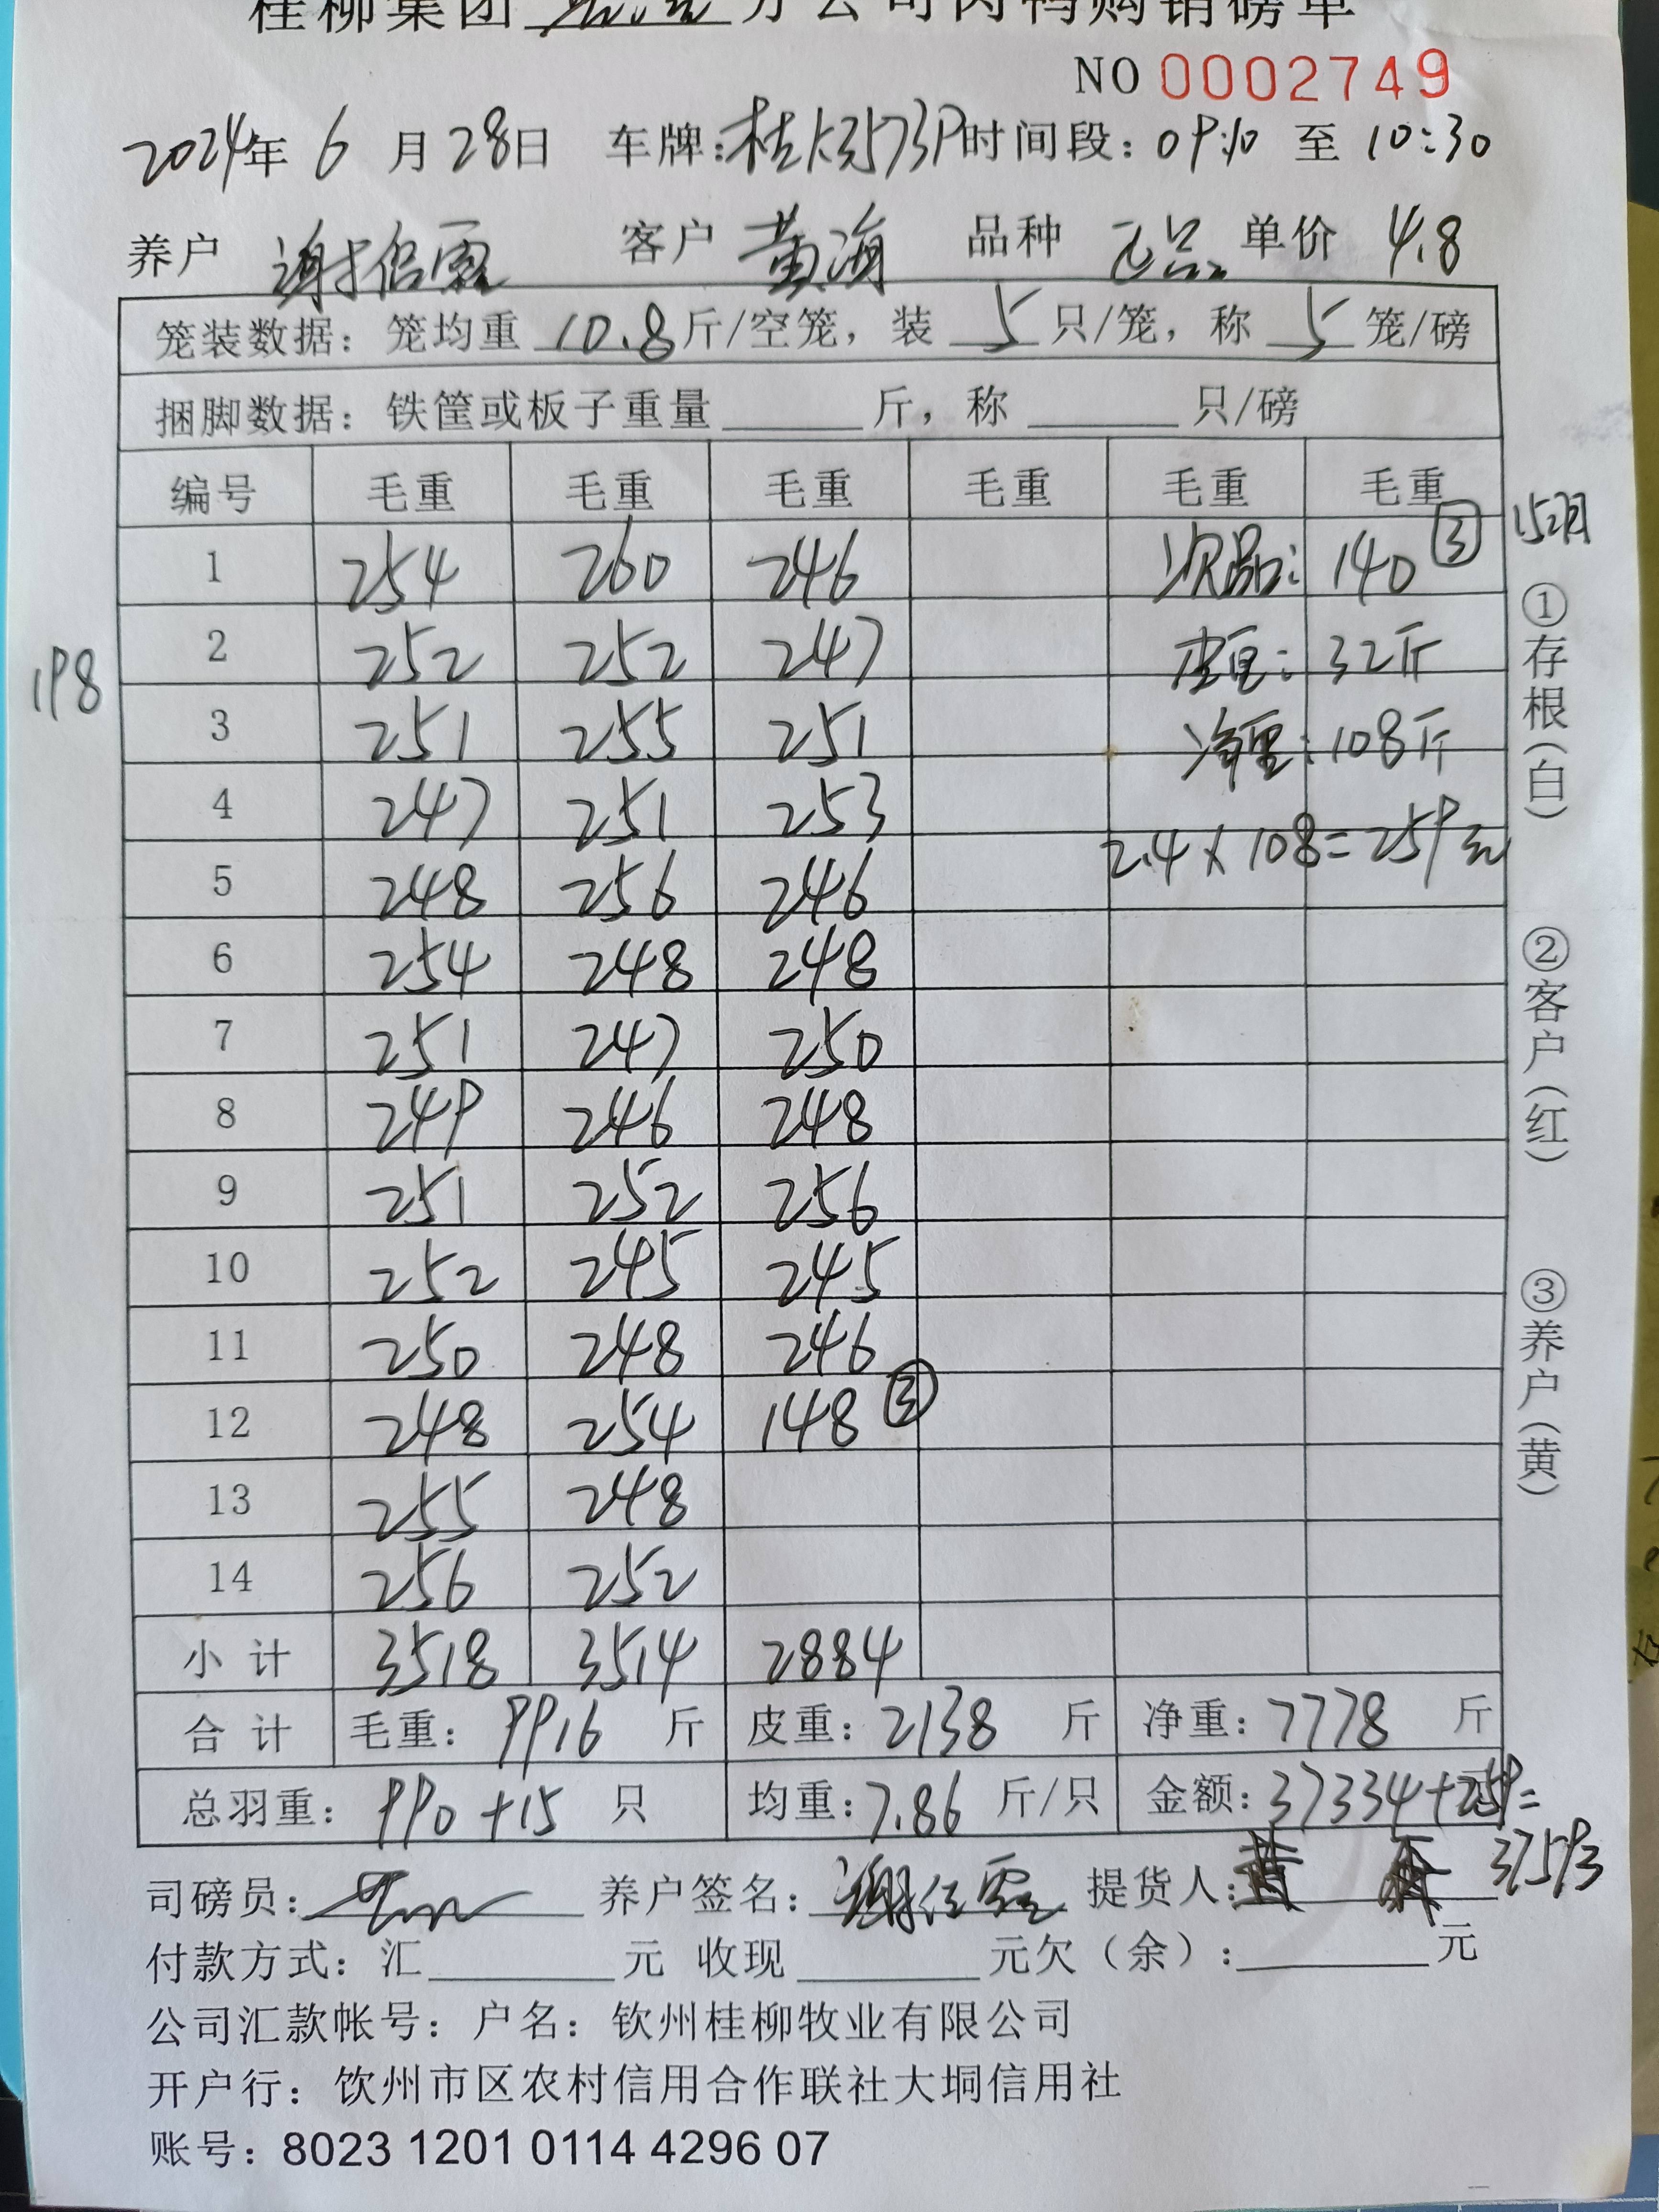 桂柳集团 分公司肉鸭购销磅单
NO 0002749
2024年 6 月 28日 车牌: 时间段: 09:10 至 10:30
养户 客户 黄海 品种 正品 单价 4.8
笼装数据: 笼均重 10.8 斤/空笼, 装 5 只/笼, 称 5 笼/磅
捆脚数据: 铁筐或板子重量 斤, 称 只/磅
编号 毛重 毛重 毛重 毛重 毛重 毛重
1 254 260 246 次品: 140 ③ 15只
2 252 252 247 皮重: 32斤
198
3 251 255 251 净重: 108斤
4 247 251 253 2.4 × 108 = 259元
5 248 256 246
6 254 248 248
7 251 247 250
8 249 246 248
9 251 252 256
10 252 245 245
11 250 248 246
12 248 254 148 ③
13 255 248
14 256 252
小计 3518 3514 2884
合计 毛重: 9916 斤 皮重: 2138 斤 净重: 7778 斤
总羽重: 990+15 只 均重: 7.86 斤/只 金额: 37334+259=
37593
司磅员: 养户签名: 提货人:
付款方式: 汇 元 收现 元欠(余): 元
公司汇款帐号: 户名: 钦州桂柳牧业有限公司
开户行: 钦州市区农村信用合作联社大垌信用社
账号: 8023 1201 0114 4296 07
①存根(白)
②客户(红)
③养户(黄)